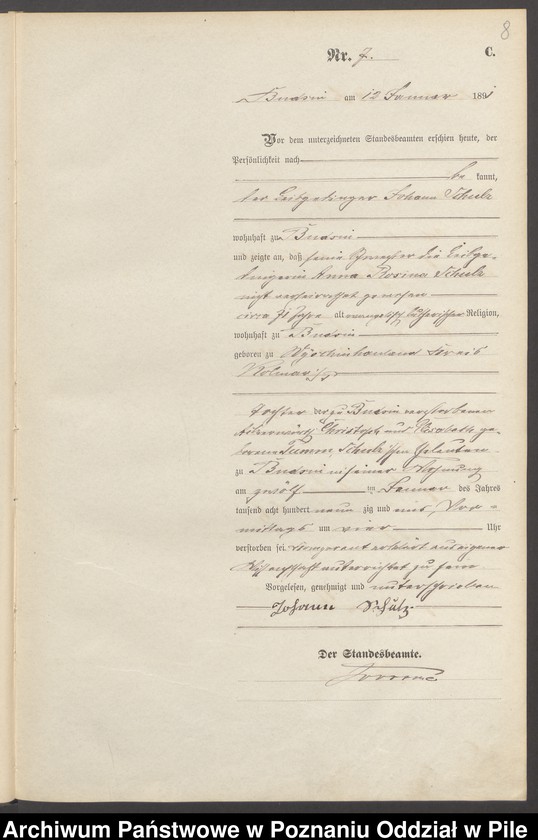 8
Nr. 7. C.
Budsin am 12 Januar 1891
Vor dem unterzeichneten Standesbeamten erschien heute, der
Persönlichkeit nach
be kannt,
der Leibgedinger Johann Schulz
wohnhaft zu Budsin
und zeigte an, daß seine Schwester die Leibge-
dingerin Anna Rosina Schulz
nicht verheirathet gewesen
circa 71 Jahre alt evangelisch lutherischer Religion,
wohnhaft zu Budsin
geboren zu Kreis
Kolmar i/P
Tochter der zu Budsin verstorbenen
Christoph und ge-
borene Schulz'schen Eheleuten
zu Budsin in seiner Wohnung
am zwölf ten Januar des Jahres
tausend acht hundert neun zig und eins, Vor-
mittags um vier Uhr
verstorben sei. erklärt aus eigener
Wissenschaft unterrichtet zu sein
Vorgelesen, genehmigt und unterschrieben
Johann Schulz
Der Standesbeamte.
Archiwum Państwowe w Poznaniu Oddział w Pile